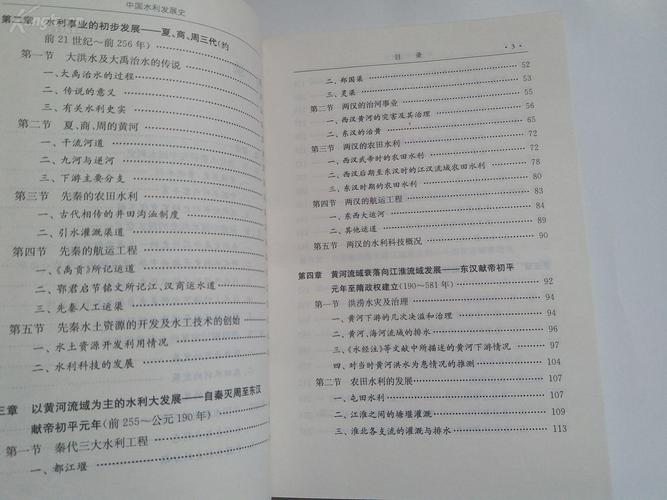 中国水利发展史
第二章 水利事业的初步发展——夏、商、周三代(约
前21世纪~前256年)
第一节 大洪水及大禹治水的传说
一、大禹治水的过程
二、传说的意义
三、有关水利史实
第二节 夏、商、周的黄河
一、干流河道
二、九河与逆河
三、下游主要分支
第三节 先秦的农田水利
一、古代相传的井田沟洫制度
二、引水灌溉渠道
第四节 先秦的航运工程
一、《禹贡》所记运道
二、鄂君启节铭文所记江、汉商运水道
三、先秦人工运渠
第五节 先秦水土资源的开发及水工技术的创始
一、水土资源开发利用情况
二、水利科技的发展
三章 以黄河流域为主的水利大发展——自秦灭周至东汉
献帝初平元年(前255~公元190年)
第一节 秦代三大水利工程
一、都江堰
目 录 · 3 ·
二、郑国渠 52
三、灵渠 53
第二节 两汉的治河事业 55
一、西汉黄河的灾害及其治理 56
二、东汉的治黄 65
第三节 两汉的农田水利 72
一、西汉武帝时的农田水利 72
二、西汉后期至东汉时的江汉流域农田水利 78
三、东汉时期的农田水利 80
第四节 两汉的航运工程 83
一、东西大运河 84
二、其他运道 89
第五节 两汉的水利科技概况 90
第四章 黄河流域衰落向江淮流域发展——东汉献帝初平
元年至隋政权建立(190~581年) 92
第一节 洪涝水灾及治理 94
一、黄河下游的几次决溢和治理 94
二、黄河、海河流域的排水 96
三、《水经注》等文献中所描述的黄河下游情况 97
四、对当时黄河洪水为患情况的推测 104
第二节 农田水利的发展 107
一、屯田水利 107
二、江淮之间的塘堰灌溉 109
三、淮北各支流的灌溉与排水 113